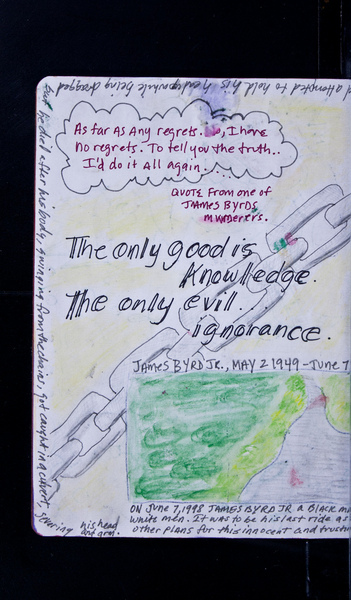 d attempted to hold his head up while being dragged
but he died after his body, swinging from the chains, got caught in a culvert,
his head
and arm.
As far As Any regrets. No, I have
no regrets. To tell you the truth..
I'd do it All again....
QUOTE from one of
JAMES BYRDS
MURDERERS.
The only good is
knowledge.
The only evil..
ignorance.
JAMES BYRD JR., MAY 2 1949 - JUNE 7
ON JUNE 7, 1998 JAMES BYRD JR A BLACK
white men. It was to be his last ride as
other plans for this innocent and